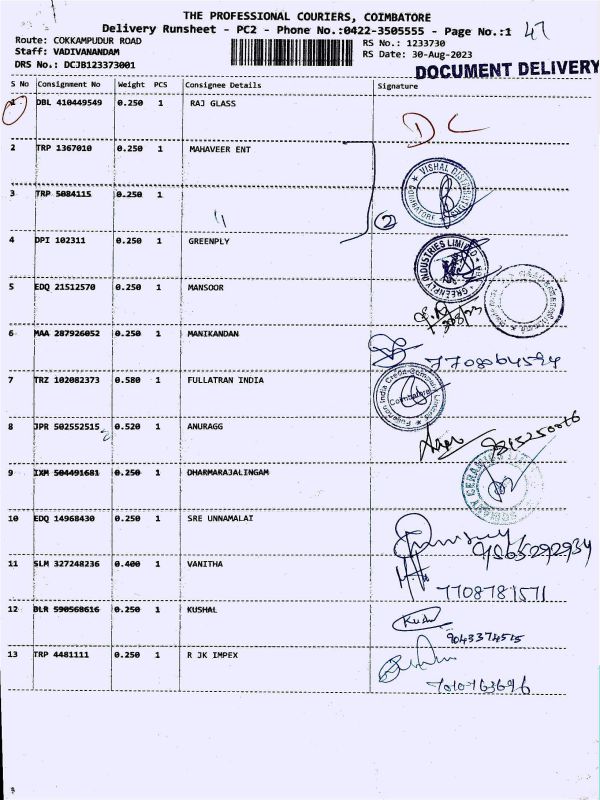 THE PROFESSIONAL COURIERS, COIMBATORE
Delivery Runsheet - PC2 - Phone No.:0422-3505555 - Page No.:1 47
Route: COKKAMPUDUR ROAD RS No.: 1233730
Staff: VADIVANANDAM RS Date: 30-Aug-2023
DRS No.: DCJB123373001 DOCUMENT DELIVERY
S No Consignment No Weight PCS Consignee Details Signature
1 DBL 410449549 0.250 1 RAJ GLASS DC
2 TRP 1367010 0.250 1 MAHAVEER ENT
3 TRP 5084115 0.250 1 " 2
4 DPI 102311 0.250 1 GREENPLY
GREENPLY INDUSTRIES LIMITED
5 EDQ 21512570 0.250 1 MANSOOR
6 MAA 287926052 0.250 1 MANIKANDAN
7708064594
7 TRZ 102082373 0.580 1 FULLATRAN INDIA
Coimbatore
8 JPR 502552515 0.520 1 ANURAGG
9 IXM 504491681 0.250 1 DHARMARAJALINGAM
10 EDQ 14968430 0.250 1 SRE UNNAMALAI
9565292934
11 SLM 327248236 0.400 1 VANITHA
7708781571
12 BLR 590568616 0.250 1 KUSHAL
9043374515
13 TRP 4481111 0.250 1 R JK IMPEX